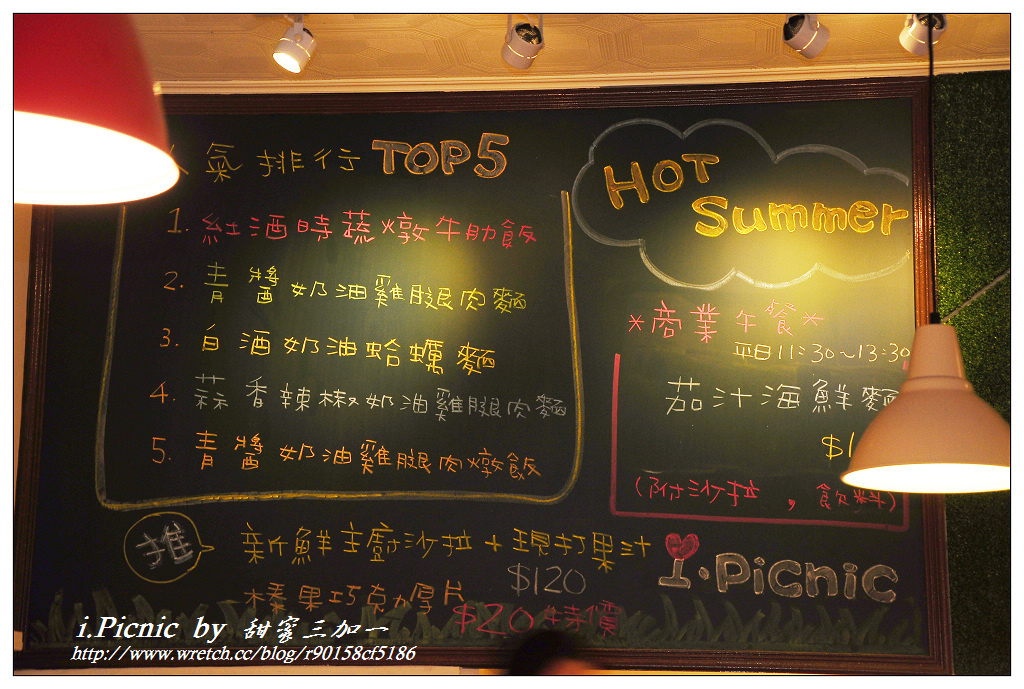 氣排行TOP5
1. 紅酒時蔬燉牛肋飯
2. 青醬奶油雞腿肉麵
3. 白酒奶油蛤蠣麵
4. 蒜香辣椒奶油雞腿肉麵
5. 青醬奶油雞腿肉燉飯
HOT
Summer
*商業午餐*
平日11:30~13:30
茄汁海鮮麵
$1
(附沙拉,飲料)
推
新鮮主廚沙拉+現打果汁
$120
榛果巧克力厚片
$20特價
i.Picnic
i.Picnic by 甜蜜三加一
http://www.wretch.cc/blog/r90158cf5186